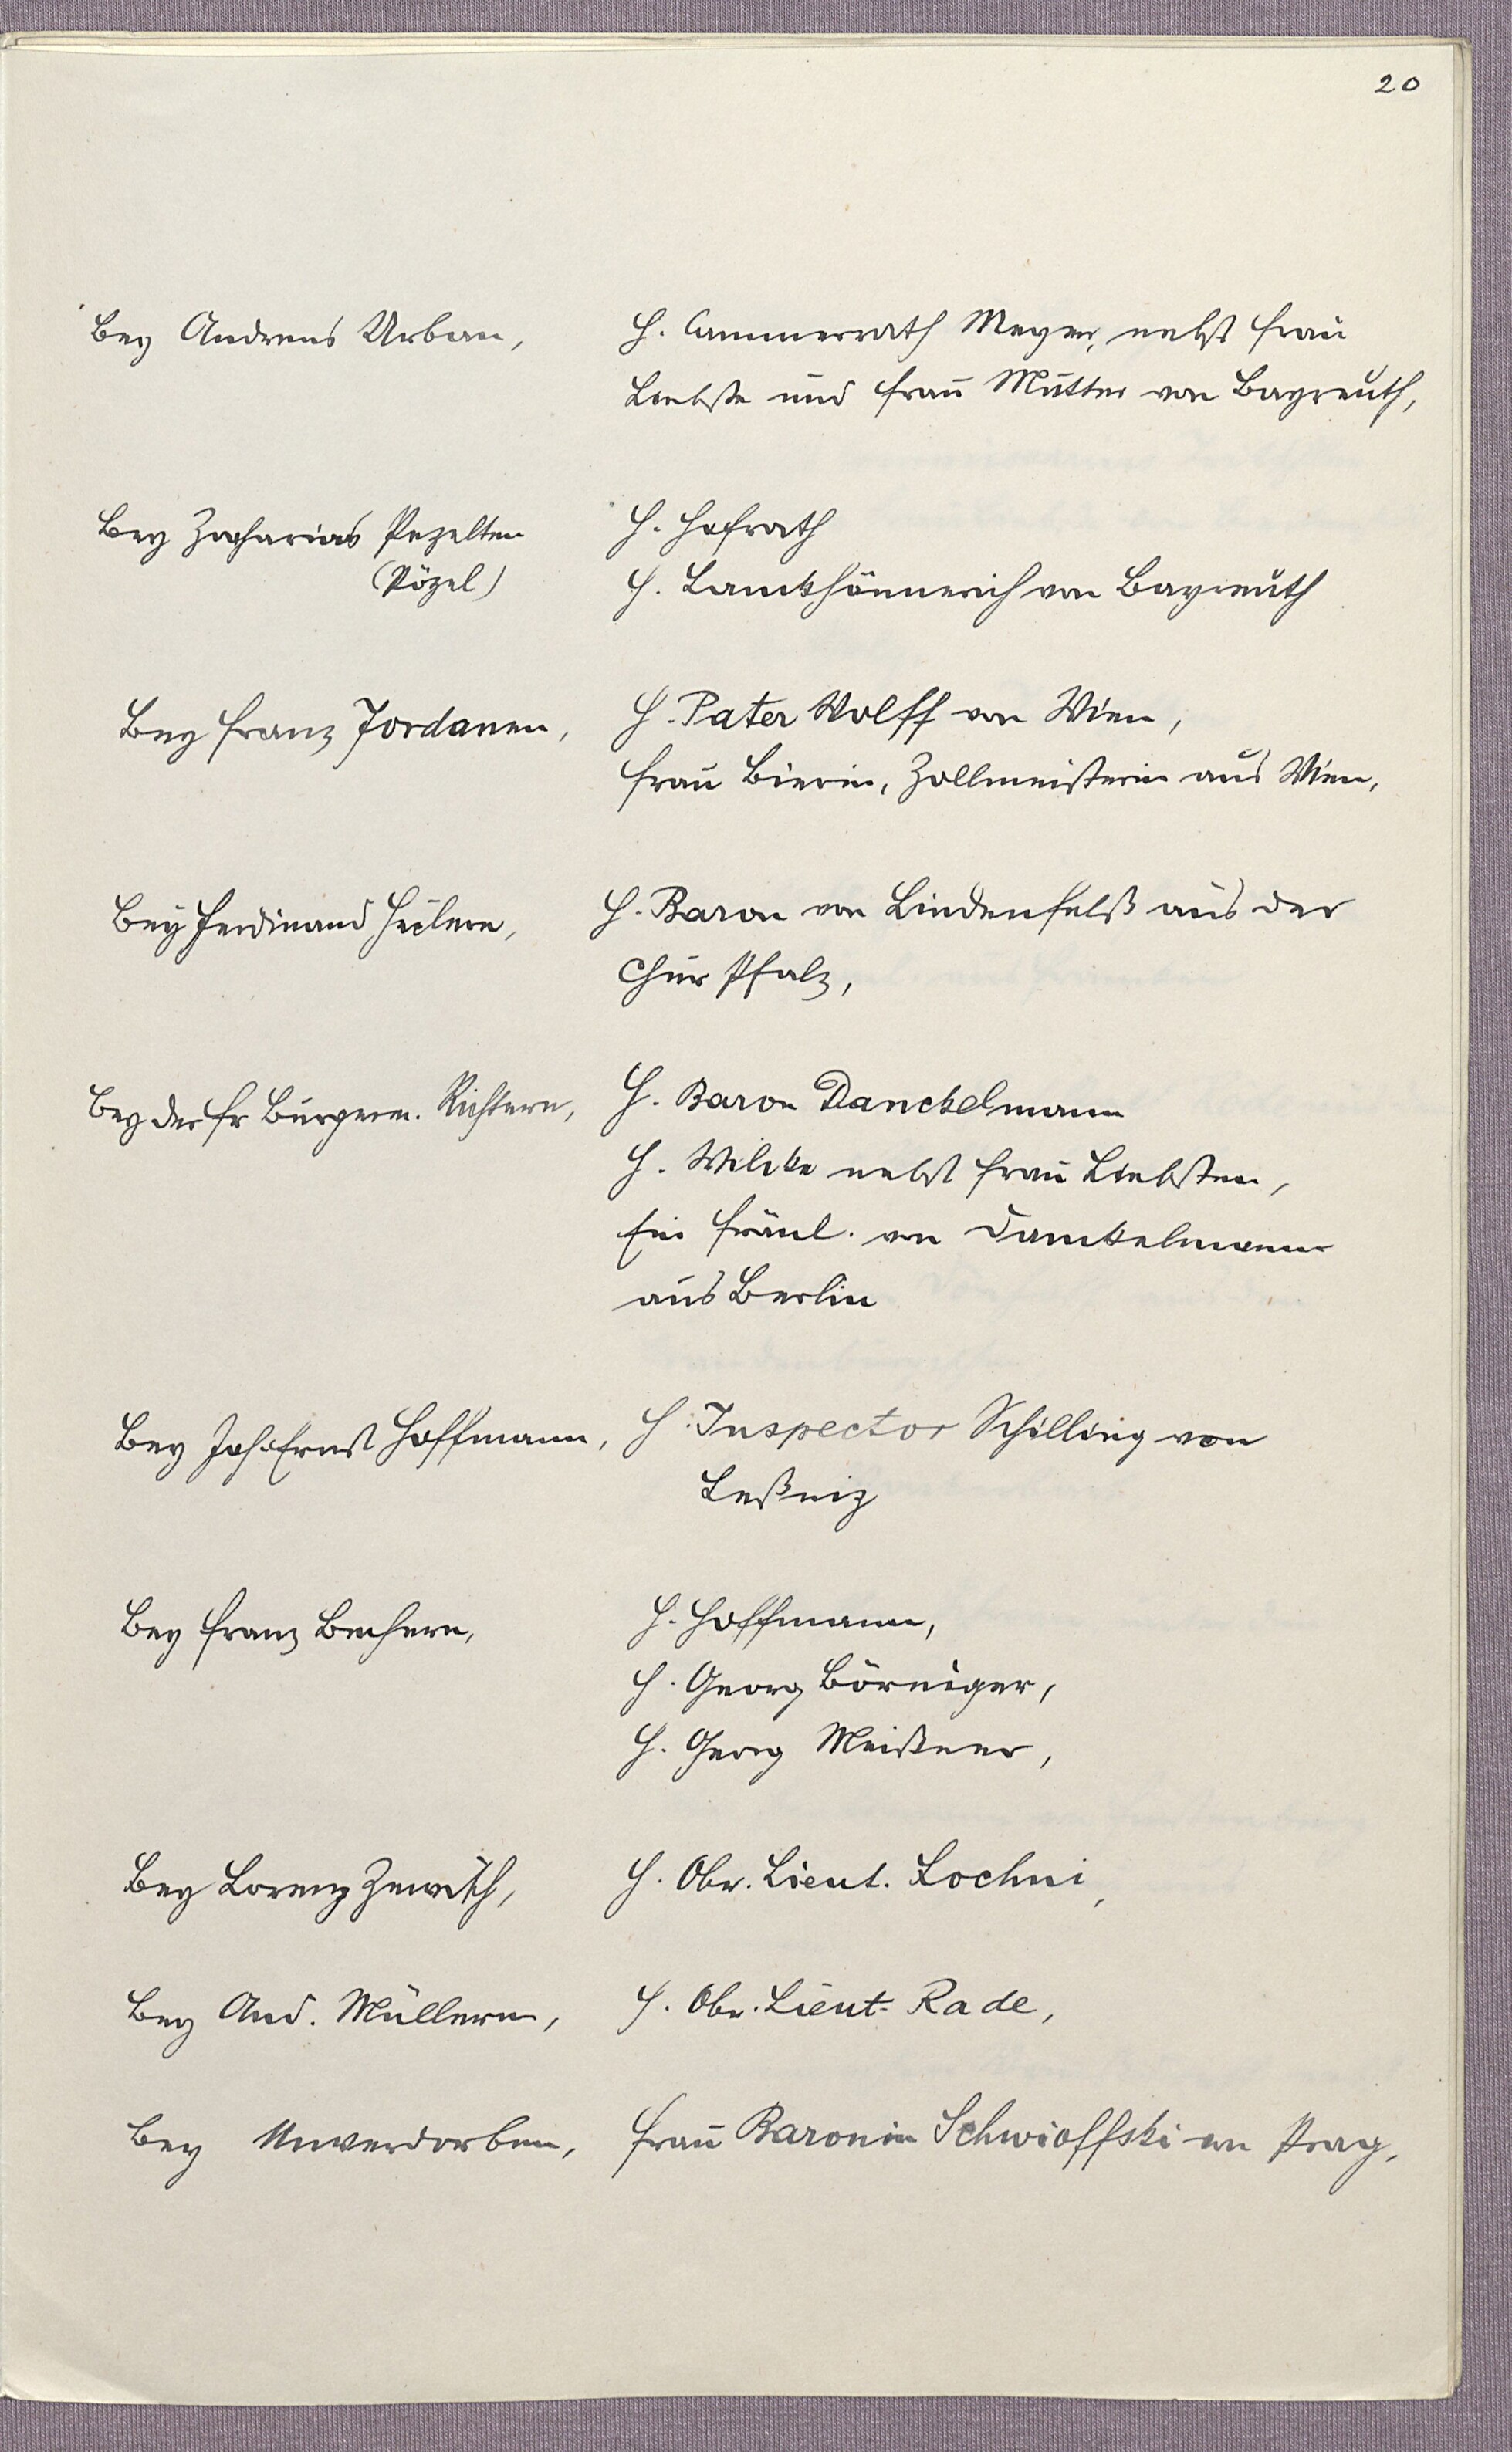 20
Bey Andreas Urban, H. Cammerrath Meyer, nebst Frau
Liebste und Frau Mutter von Bayreuth,
Bey Zacharias Pezelten H. Hofrath
(Pözel) H. von Bayreuth
Bey Franz Jordanen, H. Pater Wolff von Wien,
Frau Bierin, Zollmeisterin aus Wien,
Bey Ferdinand H. Baron von Lindenfelß aus der
Chur Pfalz,
Bey der Fr Burgerm. Richtern, H. Baron Danckelmann
H. Wilcke nebst Frau Liebsten,
Ein Fräul. von Danckelmann
aus Berlin
Bey Joh. Ernst Hoffmann, H. Inspector Schilling von
Leßniz
Bey Franz Bechern, H. Hoffmann,
H. Georg Börniger,
H. Georg Meißner,
Bey Lorenz H. Obr. Lieut. Lochni,
Bey And. Müllern, H. Obr. Lieut. Rade,
Bey Unverdorben, Frau Baronin Schwioffski von Prag,